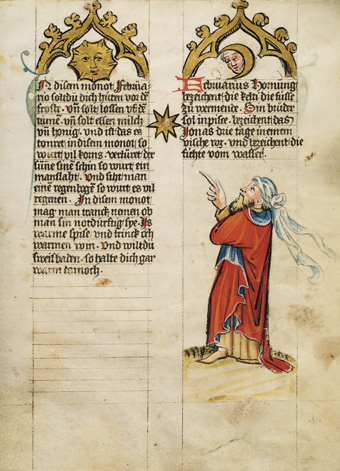 In disem monot Februa
rio soltdu dich hütten vor de
froste. vn solt lossen vf de
dume. vn solt essen milch
vn honig. vnd ist das es
donret in disem monot so
wurt vil korns.
sune sine schin so wurt ein
manslaht. Vnd siht man
einen regenbogē so wurt es vil
regenen. In disem monot
mag man tranck nemen ob
man sin notdurftig sye. Is
warme spise vnd trinck och
warmen win. Vnd wiltdu
sweisbaden. so halte dich gar
warm dornoch.
Februarius Hornūng
bezeichent die kelti die füsse
zu vermonde. Sin bruder
sol in pise. bezeichent das
Jonas drie tage in einem
vische vor. vnd bezeichent die
füchte vom wasser.